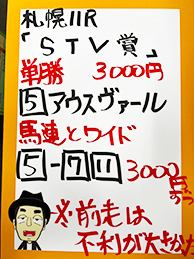 札幌11R
「STV賞」
単勝 3000円
5 アウスヴァール
馬連とワイド
5-7 11 3000
円ずつ
※前走は
不利が大きかった